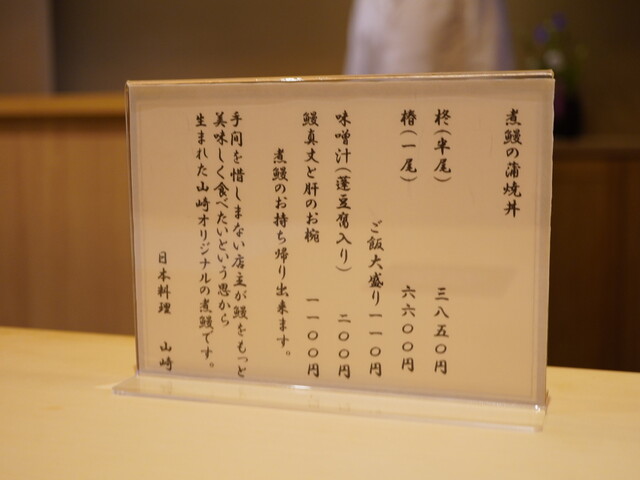 煮鰻の蒲焼丼
柊（半尾） 三八五〇円
椿（一尾） 六六〇〇円
ご飯大盛り 一一〇円
味噌汁（蓬豆腐入り） 二〇〇円
鰻真丈と肝のお椀 一一〇〇円
煮鰻のお持ち帰り出来ます。
手間を惜しまない店主が鰻をもっと
美味しく食べたいという思から
生まれた山崎オリジナルの煮鰻です。
日本料理 山崎